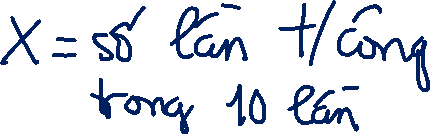 X = số lần t/công
trong 10 lần